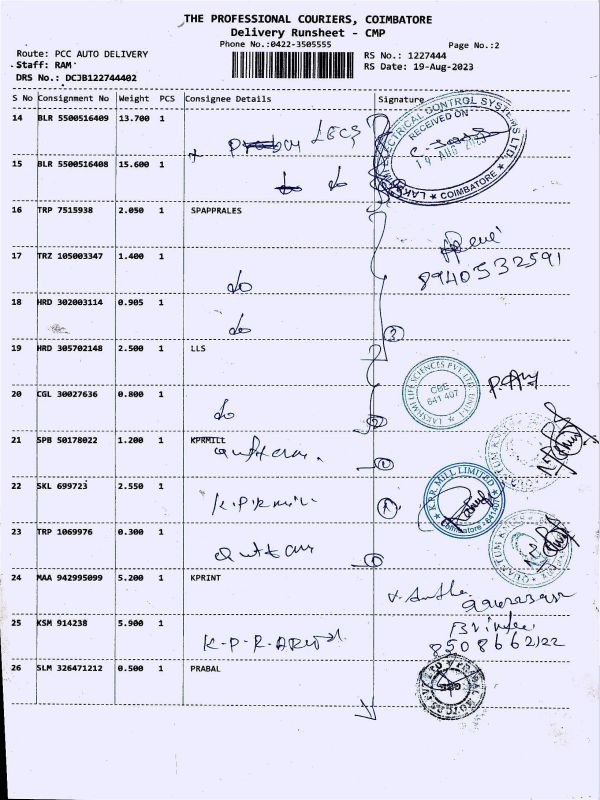 THE PROFESSIONAL COURIERS, COIMBATORE
Delivery Runsheet - CMP
Phone No.:0422-3505555
Page No.:2
Route: PCC AUTO DELIVERY
RS No.: 1227444
Staff: RAM
RS Date: 19-Aug-2023
DRS No.: DCJB122744402
S No Consignment No Weight PCS Consignee Details Signature
14 BLR 5500516409 13.700 1 LECS
ELECTRICAL CONTROL SYSTEMS LTD.,
RECEIVED ON
19 AUG 2023
★ COIMBATORE ★
15 BLR 5500516408 15.600 1 do
16 TRP 7515938 2.050 1 SPAPPRALES
17 TRZ 105003347 1.400 1 do
8940532591
18 HRD 302003114 0.905 1 do
3
19 HRD 305702148 2.500 1 LLS
LAKSHMI LIFE SCIENCES PVT. LTD. UNIT-I
CBE
641 407
20 CGL 30027636 0.800 1 do
2
21 SPB 50178022 1.200 1 KPRMILL
1
QUANTUM KNITS
22 SKL 699723 2.550 1 K.P.R mill
1
K.P.R. MILL LIMITED
Coimbatore - 641407
23 TRP 1069976 0.300 1
1
QUANTUM KNITS
24 MAA 942995099 5.200 1 KPRINT
25 KSM 914238 5.900 1
8508662122
26 SLM 326471212 0.500 1 PRABAL
PRABAL MOTORS PVT LTD